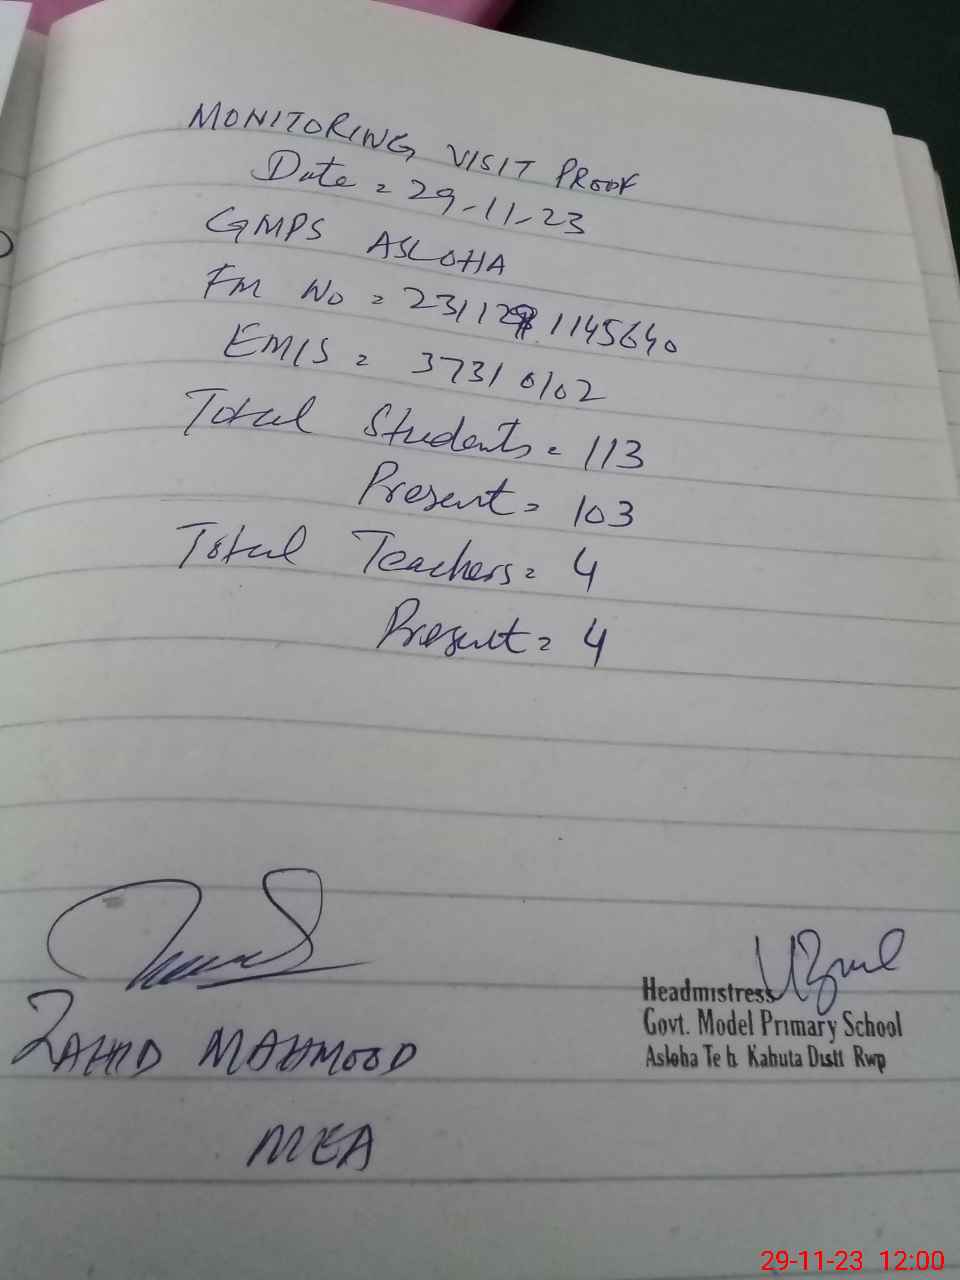 MONITORING VISIT PROOF
Date = 29-11-23
GMPS ASLOHA
FM No = 231129 1145640
EMIS = 37310102
Total Students = 113
Present = 103
Total Teachers = 4
Present = 4
ZAHID MAHMOOD
MEA
Headmistress
Govt. Model Primary School
Asloha Teh Kahuta Distt Rwp
29-11-23 12:00